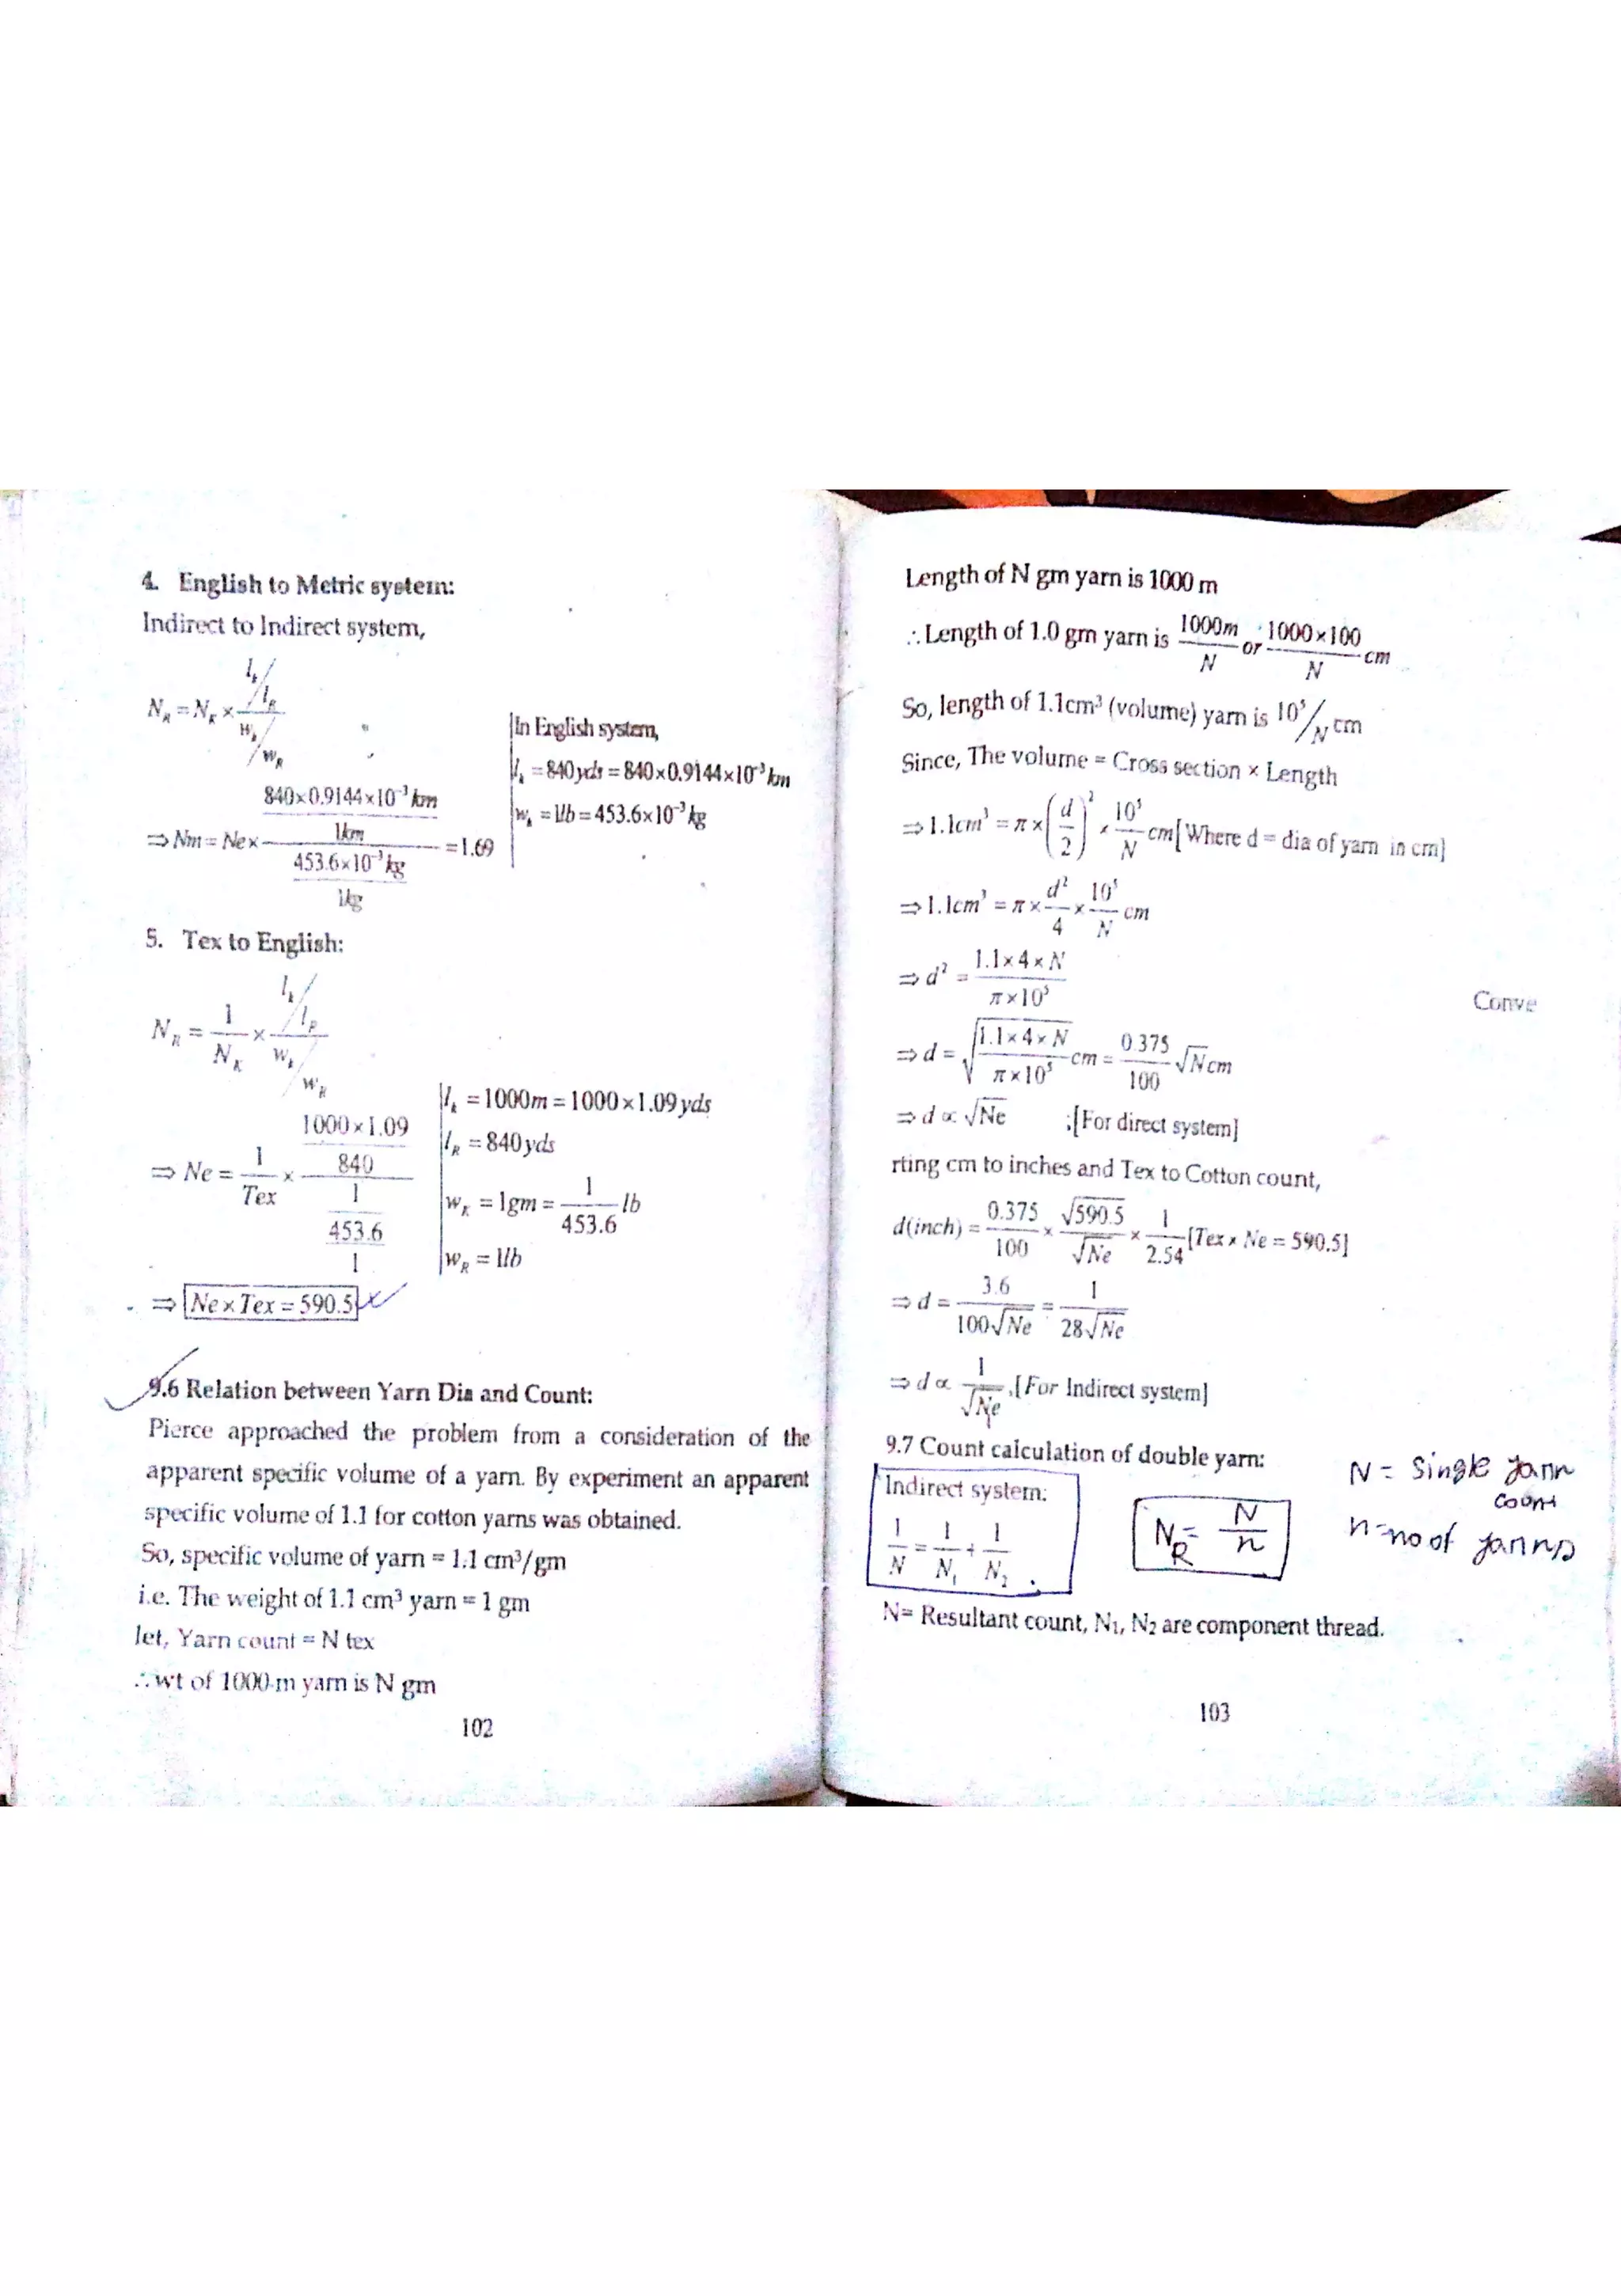 4. English to Metric system:
Indirect to Indirect system,
N_R = N_K × (l_k / l_R) / (w_k / w_R)
In English system,
l_k = 840yds = 840×0.9144×10⁻³km
w_k = 1lb = 453.6×10⁻³kg
⇒ Nm = Ne × (840×0.9144×10⁻³km / 1km) / (453.6×10⁻³kg / 1kg) = 1.69
5. Tex to English:
N_R = 1/N_K × (l_k / l_R) / (w_k / w_R)
l_k = 1000m = 1000×1.09yds
l_R = 840yds
w_K = 1gm = 1/453.6 lb
w_R = 1lb
⇒ Ne = 1/Tex × (1000×1.09 / 840) / (1/453.6 / 1)
⇒ Ne×Tex = 590.5
9.6 Relation between Yarn Dia and Count:
Pierce approached the problem from a consideration of the
apparent specific volume of a yarn. By experiment an apparent
specific volume of 1.1 for cotton yarns was obtained.
So, specific volume of yarn = 1.1 cm³/gm
i.e. The weight of 1.1 cm³ yarn = 1 gm
let, Yarn count = N tex
∴ wt of 1000 m yarn is N gm
102
Length of N gm yarn is 1000 m
∴ Length of 1.0 gm yarn is 1000m/N or 1000×100/N cm
So, length of 1.1cm³ (volume) yarn is 10⁵/N cm
Since, The volume = Cross section × Length
⇒ 1.1cm³ = π×(d/2)² × 10⁵/N cm[Where d = dia of yarn in cm]
⇒ 1.1cm³ = π× d²/4 × 10⁵/N cm
⇒ d² = 1.1×4×N / π×10⁵
Conve
⇒ d = √(1.1×4×N / π×10⁵) cm = 0.375/100 √N cm
⇒ d ∝ √Ne ;[For direct system]
rting cm to inches and Tex to Cotton count,
d(inch) = 0.375/100 × √590.5/√Ne × 1/2.54 [Tex × Ne = 590.5]
⇒ d = 3.6/100√Ne = 1/28√Ne
⇒ d ∝ 1/√Ne ,[For Indirect system]
9.7 Count calculation of double yarn:
Indirect system:
1/N = 1/N₁ + 1/N₂
N_R = N/n
N = Single yarn
count
n = no of yarns
N= Resultant count, N₁, N₂ are component thread.
103